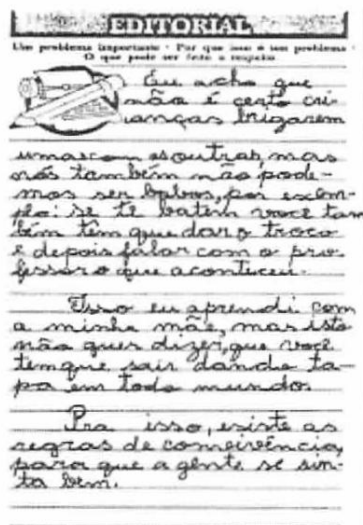 EDITORIAL
Um problema importante - Por que isso é um problema -
O que pode ser feito a respeito
Eu acho que
não é certo cri-
anças brigarem
umas com as outras, mas
nós também não pode-
mos ser bobos, por exem-
plo: se te batem você tam
bém tem que dar o troco
e depois falar com o pro
fessor o que aconteceu.
Isso eu aprendi com
a minha mãe, mas isto
não quer dizer, que você
tem que sair dando ta-
pa em todo mundo.
Pra isso, existe as
regras de convivência,
para que a gente se sin-
ta bem.